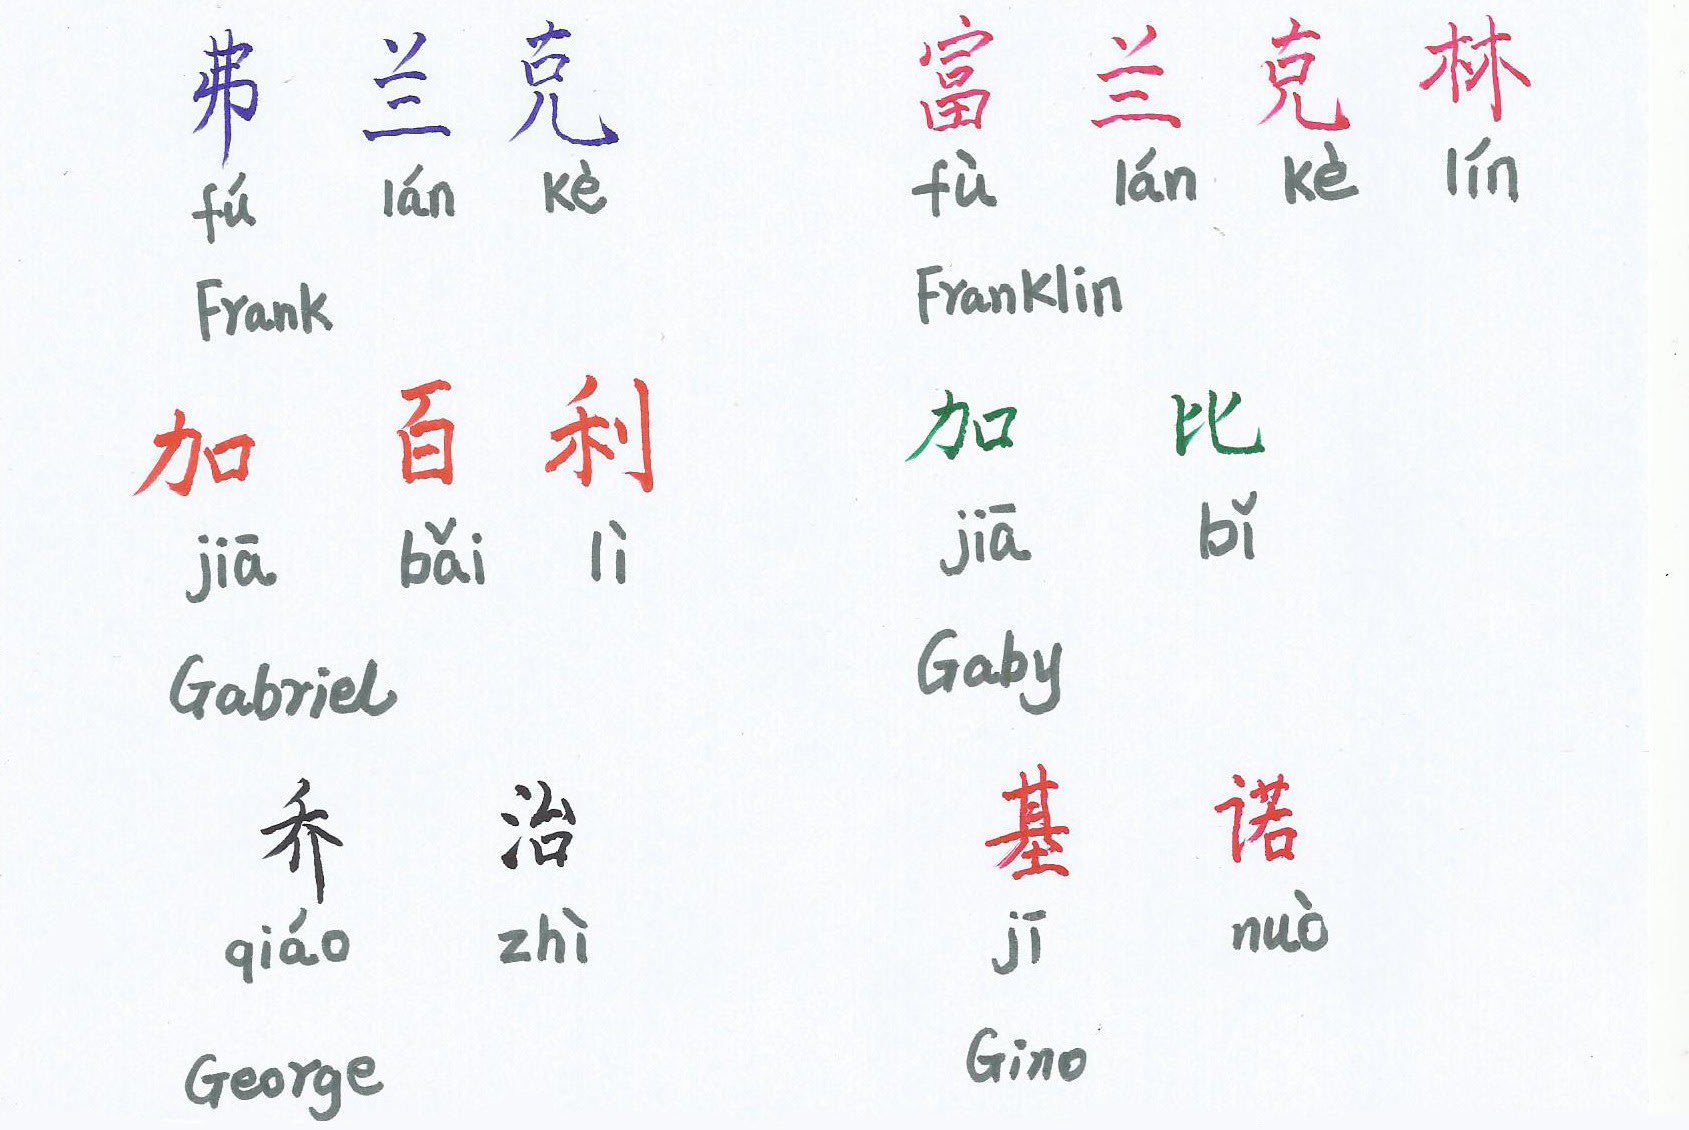 弗 兰 克
fú lán kè
Frank
富 兰 克 林
fù lán kè lín
Franklin
加 百 利
jiā bǎi lì
Gabriel
加 比
jiā bǐ
Gaby
乔 治
qiáo zhì
George
基 诺
jī nuò
Gino